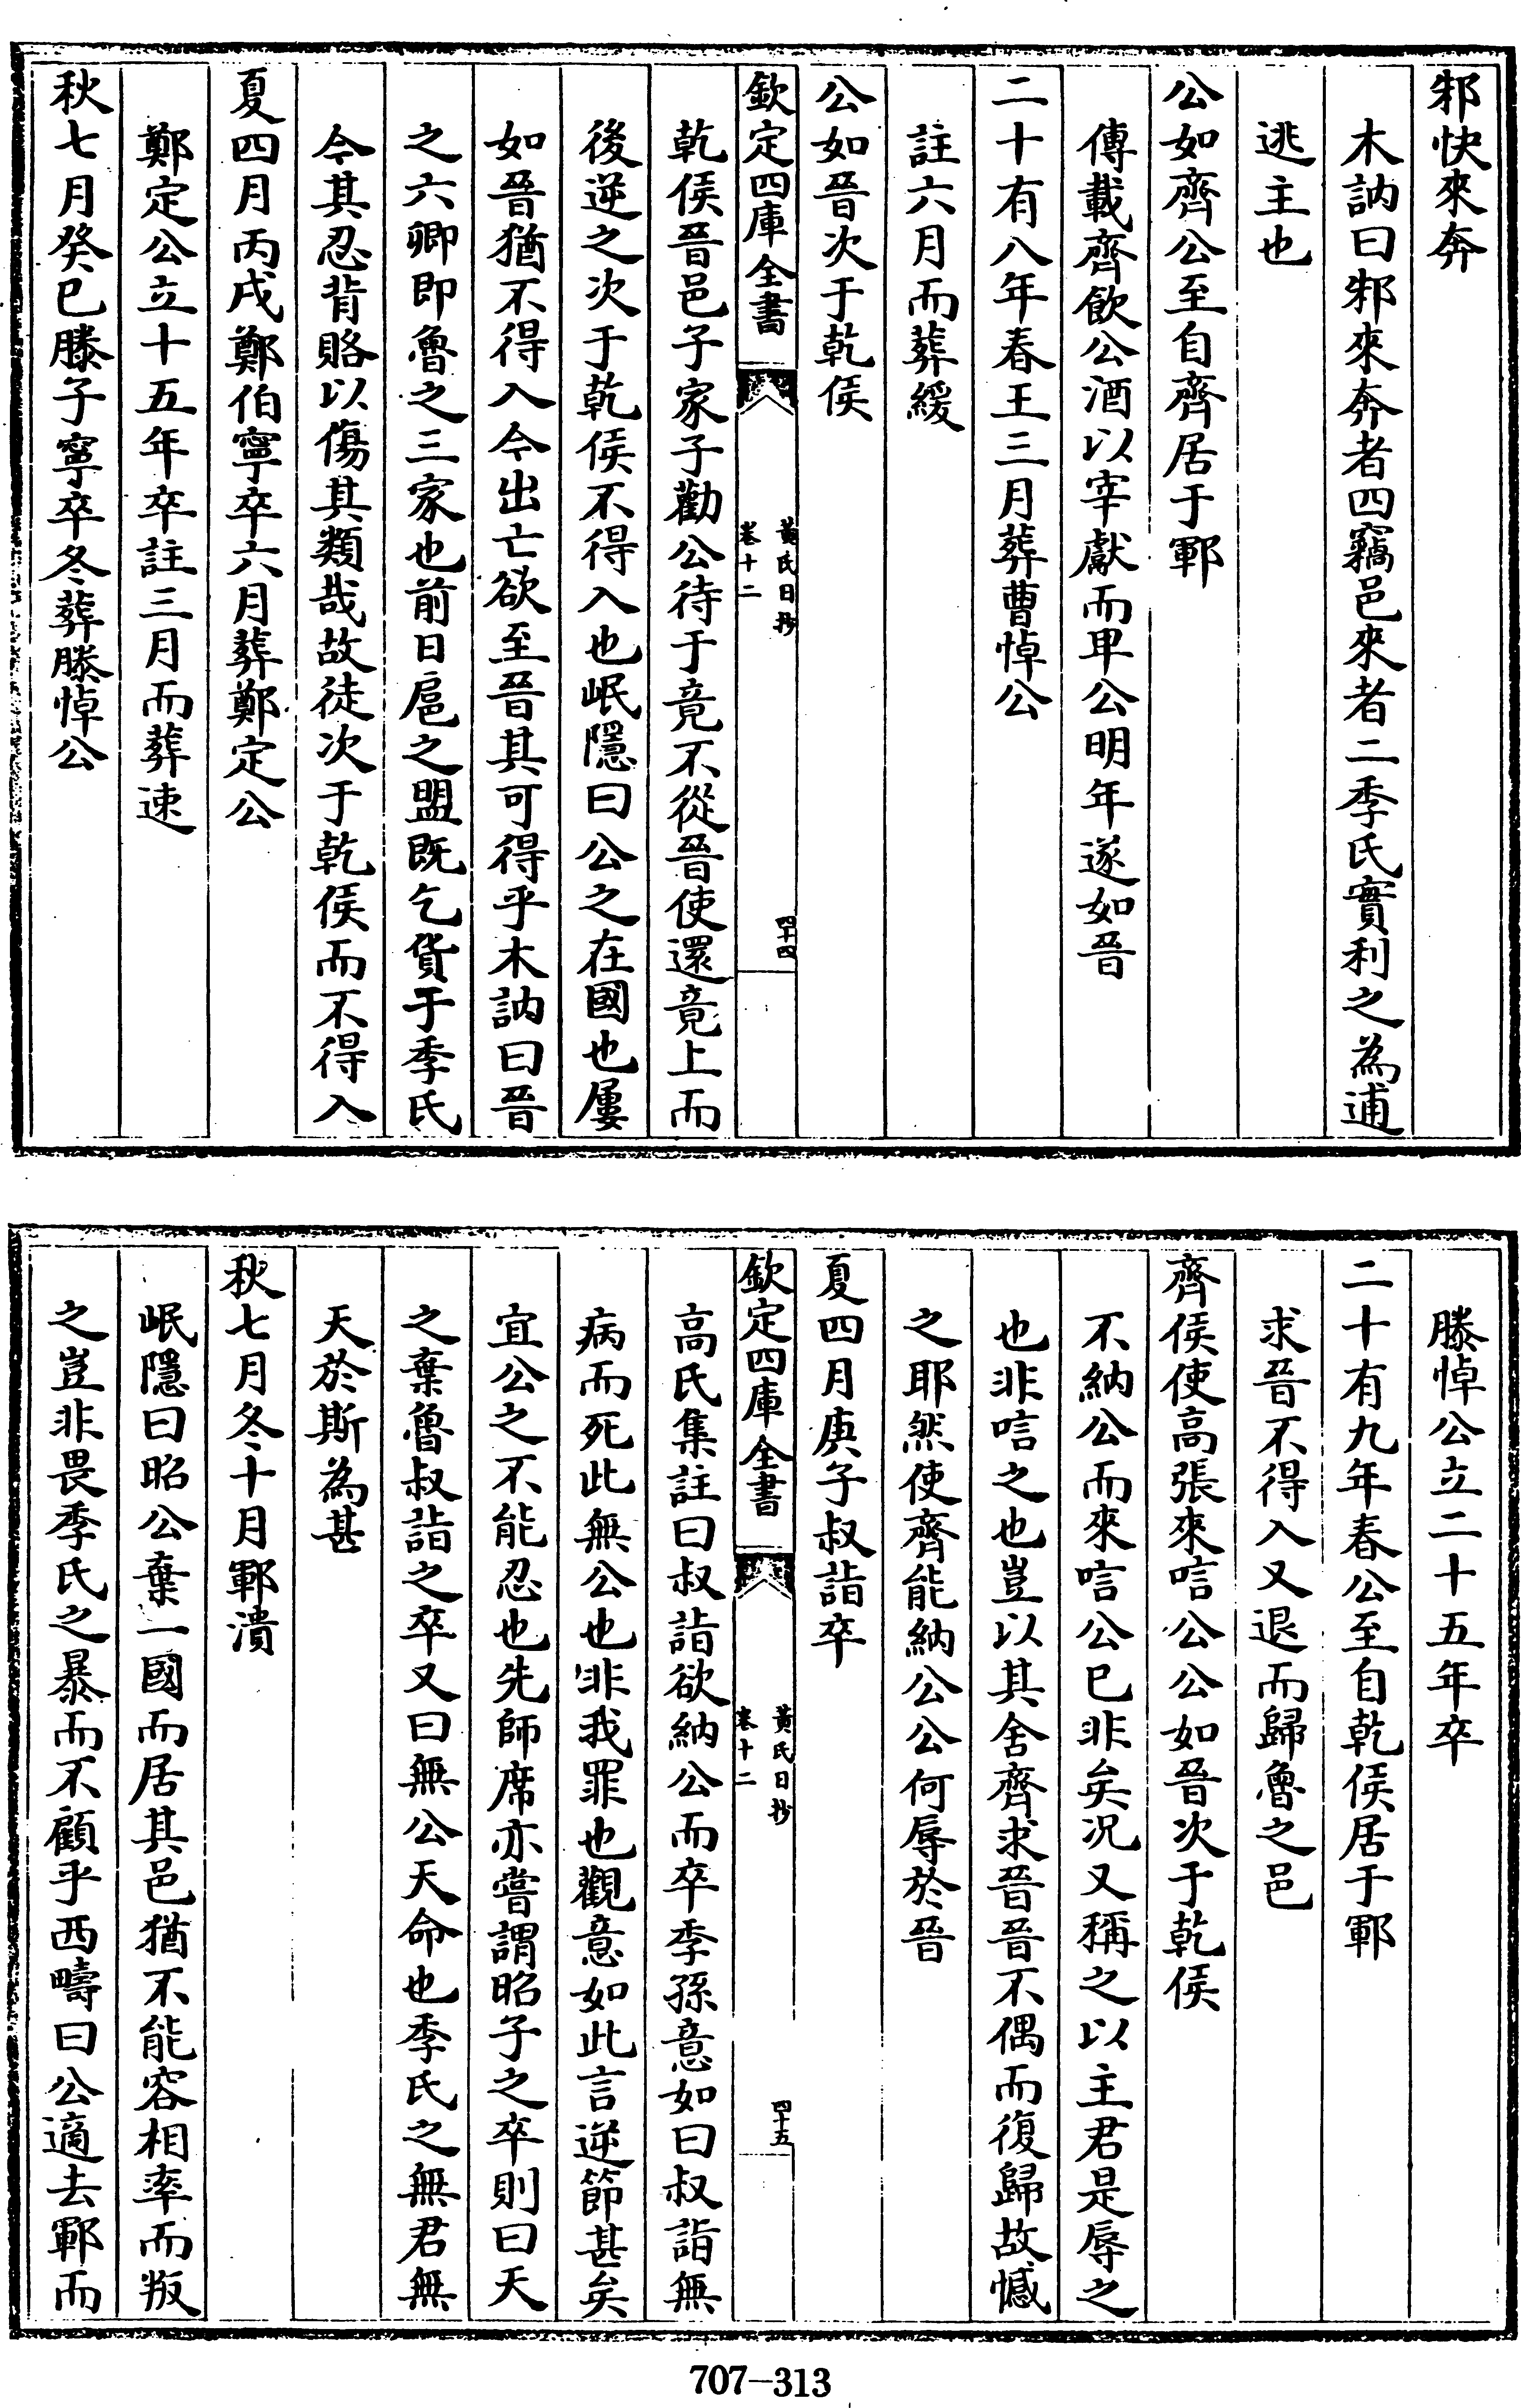 邾快來奔
木訥曰邾來奔者四竊邑來者二季氏實利之為逋
逃主也
公如齊公至自齊居于鄆
傳載齊飲公酒以宰獻而卑公明年遂如晉
二十有八年春王三月葬曹悼公
註六月而葬緩
公如晉次于乾侯
欽定四庫全書
黃氏日抄
卷十二
四十四
乾侯晉邑子家子勸公待于竟不從晉使還竟上而
後逆之次于乾侯不得入也岷隱曰公之在國也屢
如晉猶不得入今出亡欲至晉其可得乎木訥曰晉
之六卿即魯之三家也前日扈之盟既乞貨于季氏
今其忍背賂以傷其類哉故徒次于乾侯而不得入
夏四月丙戌鄭伯寧卒六月葬鄭定公
鄭定公立十五年卒註三月而葬速
秋七月癸巳滕子寧卒冬葬滕悼公
滕悼公立二十五年卒
二十有九年春公至自乾侯居于鄆
求晉不得入又退而歸魯之邑
齊侯使高張來唁公公如晉次于乾侯
不納公而來唁公已非矣况又稱之以主君是辱之
也非唁之也豈以其舍齊求晉晉不偶而復歸故憾
之耶然使齊能納公公何辱於晉
夏四月庚子叔詣卒
欽定四庫全書
黃氏日抄
卷十二
四十五
高氏集註曰叔詣欲納公而卒季孫意如曰叔詣無
病而死此無公也非我罪也觀意如此言逆節甚矣
宜公之不能忍也先師席亦嘗謂昭子之卒則曰天
之棄魯叔詣之卒又曰無公天命也季氏之無君無
天於斯為甚
秋七月冬十月鄆潰
岷隱曰昭公棄一國而居其邑猶不能容相率而叛
之豈非畏季氏之暴而不顧乎西疇曰公適去鄆而
707-313